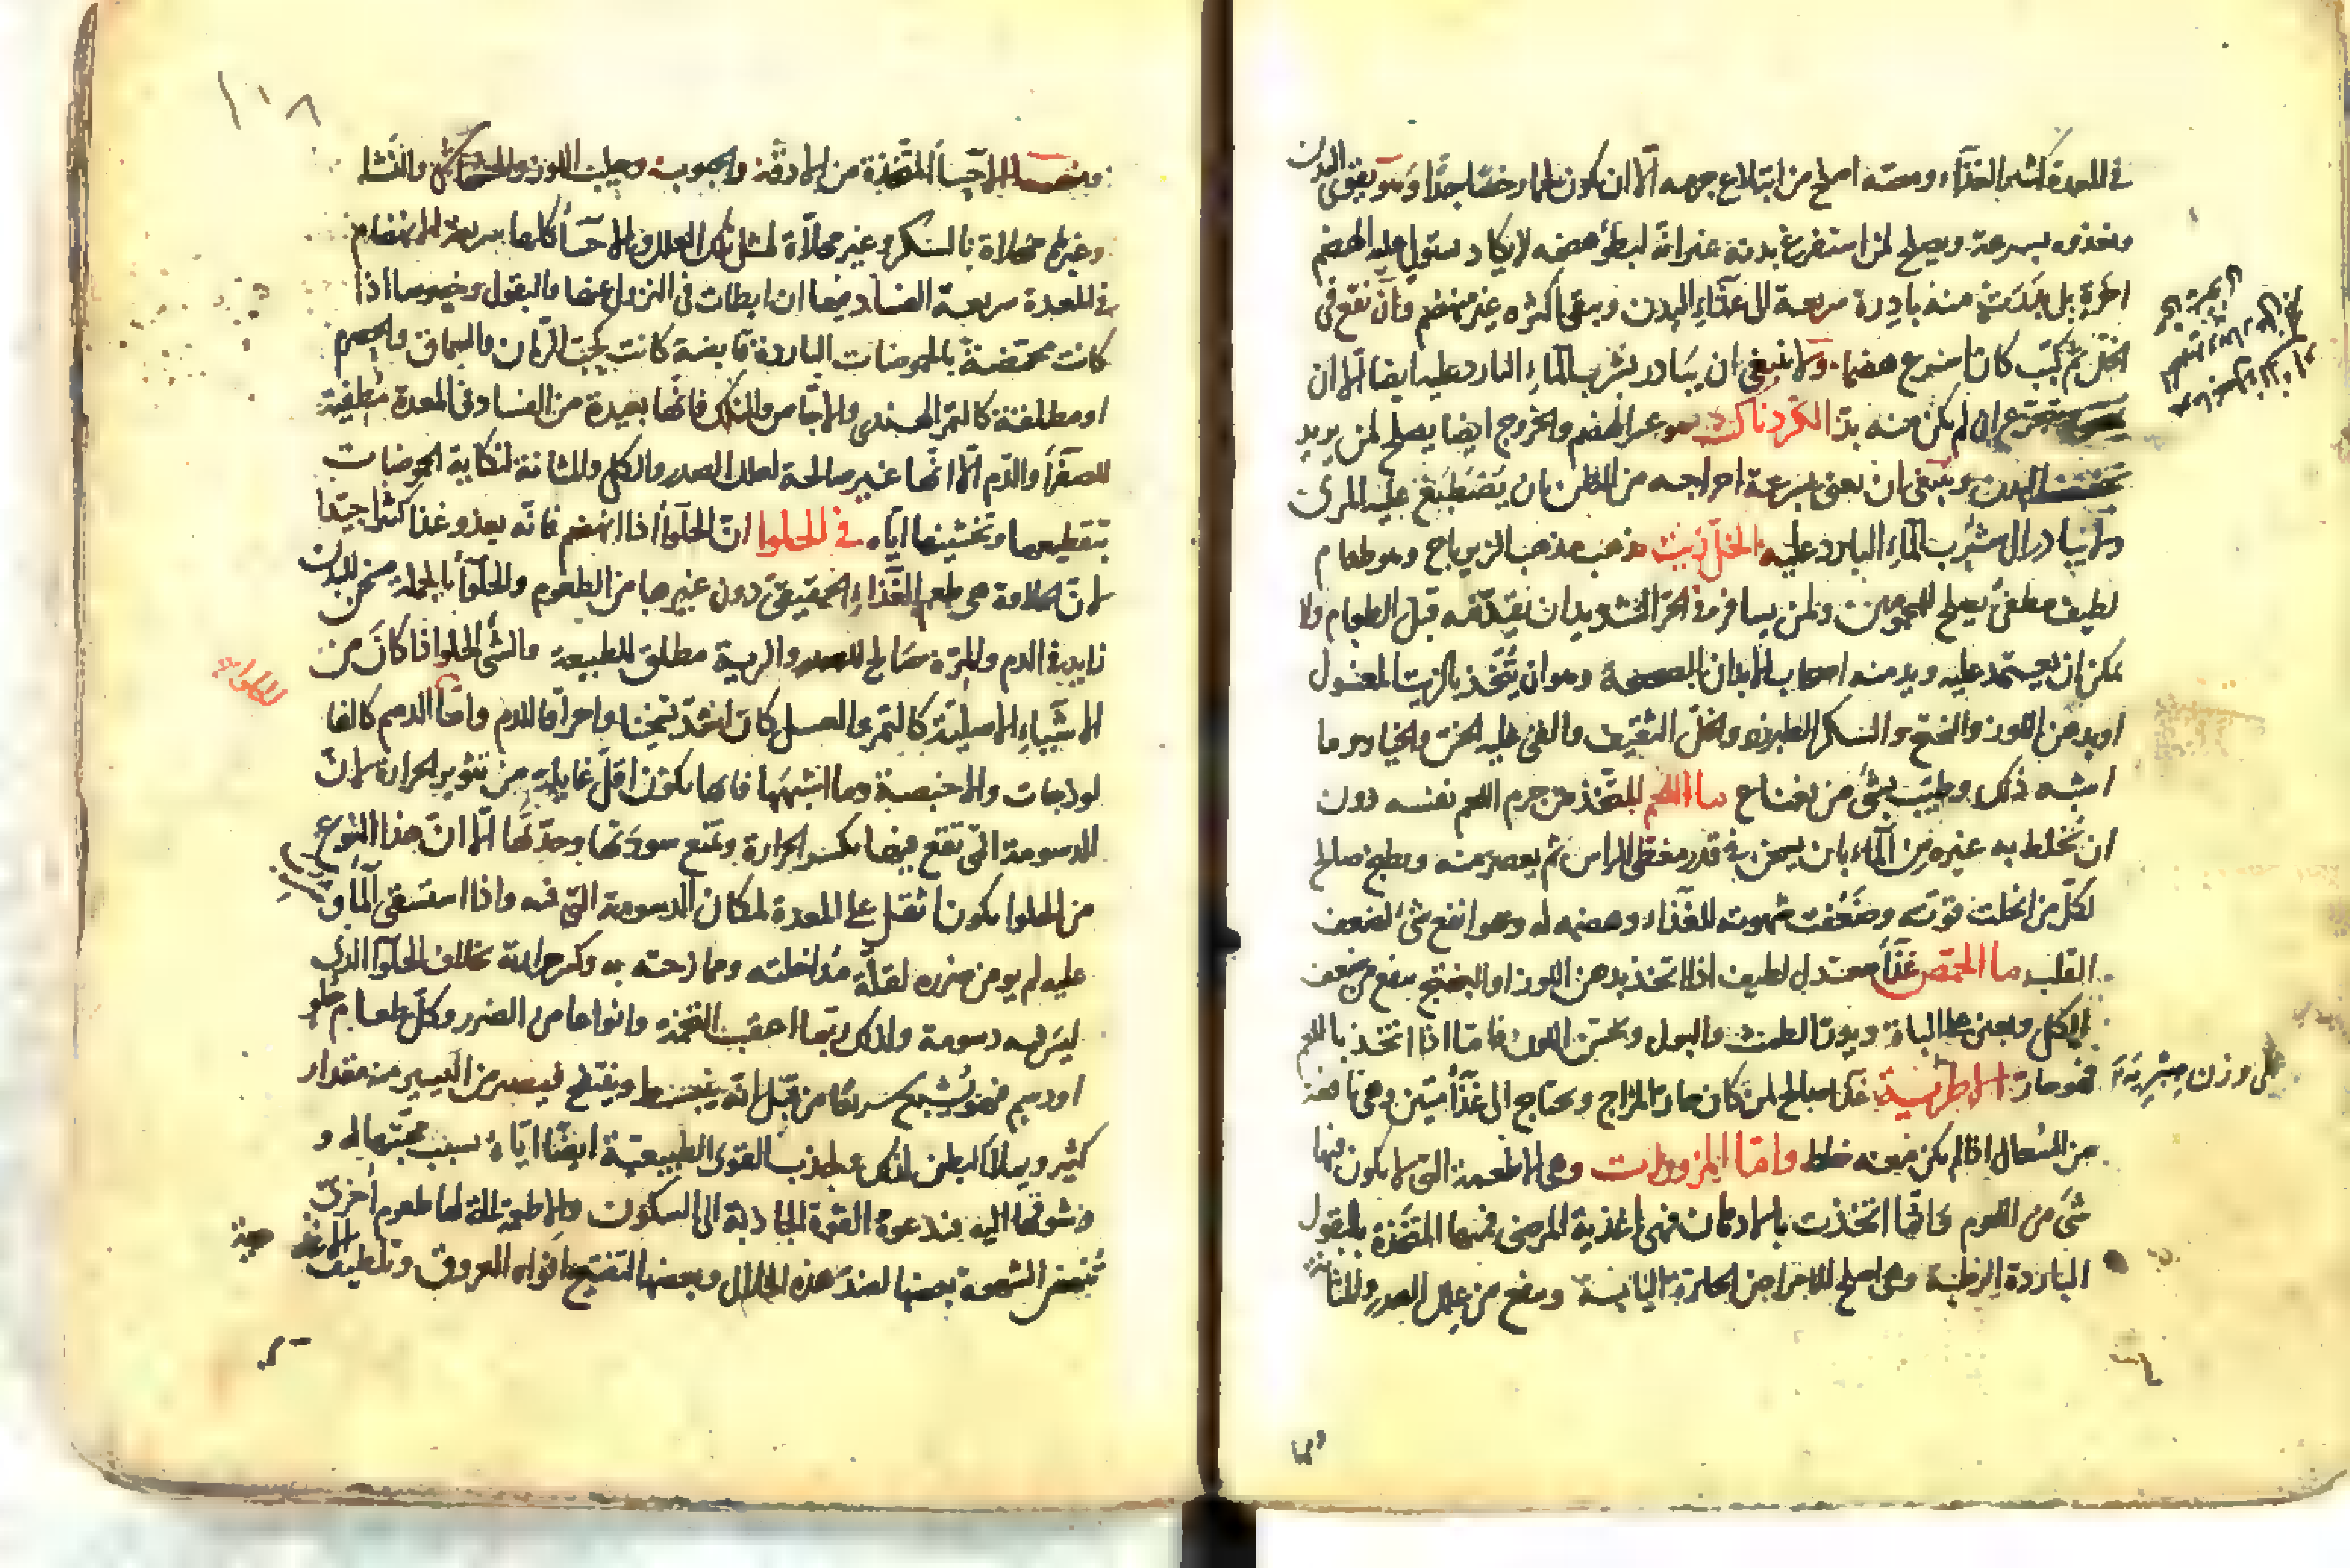 في المعدة كثير الغذاء ومصه اصلح من ابتلاع جرمه الا ان يكون لحما رخصا جدا وهو يقوى البدن
ويغذوه بسرعة ويصلح لمن استفرغ بدنه غير انه لبطؤ هضمه لا يكاد يستولى عليه الهضم
بل منه بادرة سريعة الى غذاء البدن ويبقى اكثره غير منهضم فان نقع في
الخل ثم كبب كان اسرع هضما ولا ينبغي ان يبادر بشرب الماء البارد عليه ايضا الا ان
ان لم يكن منه بد الكردناك هو عسر الهضم والخروج ايضا يصلح لمن يريد
البدن وينبغي ان يعنى بسرعة اخراجه من البطن بان يصطبغ عليه المرى
ولا يبادر الى شرب الماء البارد عليه الخل زيت مذهبه مذهب الزيرباج وهو طعام
لطيف مطفئ يصلح للمحمومين ولمن يسافر في الحر الشديد ان يقدمه قبل الطعام ولا
يمكن ان يعتمد عليه ويدمنه اصحاب الابدان وهو ان يتخذ بالزيت المغسول
او بدهن اللوز والفستق والسكر الطبرزد والخل الثقيف والقى عليه الخس والخيار وما
اشبه ذلك وطيب بشئ من نعناع ما اللحم المتخذ من جرم اللحم نفسه دون
ان يخلط به غيره من الماء بان يسخن في قدر مغطى الراس ثم يعصر منه ويطبخ صالح
لكل من انحلت قوته وضعفت شهوته للغذاء وهضمه له وهو انفع شئ لضعف
القلب ما الحمص غذا معتدل لطيف اذا اتخذ بدهن اللوز او البنفسج ينفع من ضعف
الكلى ويعين على الباه ويدر الطمث والبول ويحسن اللون فاما اذا اتخذ باللحم
فهو حار الاطرية غذا صالح لمن كان حار المزاج ويحتاج الى غذا متين وهي نافعة
على وزن هبرية
من السعال اذا لم يكن معه خلط واما المزورات وهي الاطعمة التي لا يكون فيها
شئ من اللحوم فانما اتخذت بالادهان فهي اغذية المرضى فمنها المتخذة بالبقول
الباردة الرطبة وهي اصلح للامراض الحارة اليابسة وينفع من علل الصدر والمثانة
ومنها
١٠٨
ومنها الاحسا المتخذة من الادقة والحبوب وحليب اللوز والخشخاش والنشا
وغيرها محلاة بالسكر وغير محلاة لمثل تلك العلل والاحسا كلها سريعة الانهضام
في المعدة سريعة الفساد فيها ان ابطات في النزول عنها والبقول وخصوصا اذا
كانت محمضة بالحموضات الباردة قابضة كانت كحب الرمان والسماق والحصرم
او مطلقة كالتمر الهندى والاجاص والنلك فانها بعيدة من الفساد في المعدة مطفية
للصفرا والدم الا انها غير صالحة لعلل الصدر والكلى والمثانة لنكاية الحموضات
بتقطيعها وتخشينها اياه في الحلوا ان الحلوا اذا انهضم فانه يغذو غذا كثيرا جيدا
لان الحلاوة هي طعم الغذاء الحقيقي دون غيرها من الطعوم والحلوا بالجملة مسخن للبدن
زايد في الدم والمرة صالح للصدر والرية مطلق للطبيعة والشئ الحلو اذا كان من
الحلواء
الاشياء الاصلية كالتمر والعسل كان اشد تسخينا واحراقا للدم واما الدسم كالفا
لوذجات والاخبصة وما اشبهها فانها يكون اقل غايلة من تثوير الحرارة لان
الدسومة التي تقع فيها يكسر الحرارة ويمنع سورتها وحدتها الا ان هذا النوع
من الحلوا يكون اثقل على المعدة لمكان الدسومة التي فيه واذا استسقى الماء
عليه لم يومن ضرره لقلة مداخلته وممازجته به وكراهة بخلاف الحلوا الذى
ليس فيه دسومة ولذلك ربما اعقب التخمة وانواعا من الضرر وكل طعام حلو
او دسم فهو يشبع سريعا من قبل انه ينبسط وينتفخ فيصير من اليسير منه مقدار
كثير ويملا البطن لذلك ولجذب القوى الطبيعية ايضا اياه بسبب محبتها له و
شوقها اليه فتدعو القوة الجاذبة الى السكون والاطعمة التي لها طعوم اخرى
تنهض الشهوة بعضها لضد هذه الخلال وبعضها لتفتيح افواه العروق وتلطيف الاغذية